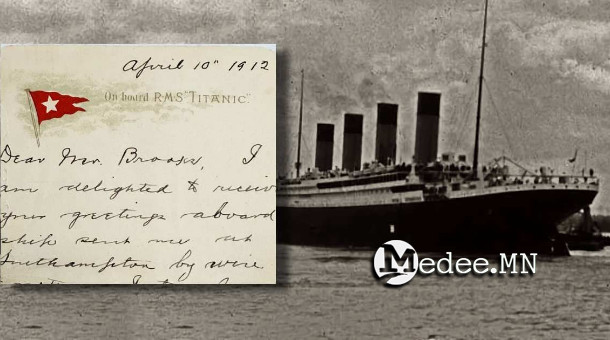 April 10" 1912
On board RMS "TITANIC"
Dear Mr. Brooks, I
am delighted to receiv
your greetings aboard
ship sent me at
Southampton by wire
Medee.MN